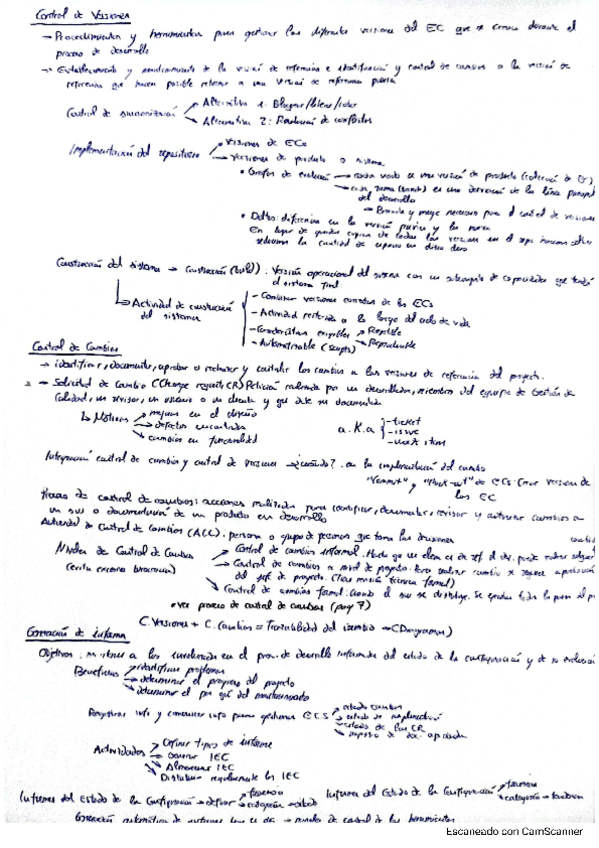 Control de Versiones
→ Procedimientos y herramientas para gestionar las diferentes versiones del EC que se crean durante el
proceso de desarrollo
→ Establecimiento y mantenimiento de la versión de referencia e identificación y control de cambios a la versión de
referencia que hacen posible retornar a una versión de referencia previa
Control de sincronización
Alternativa 1: Bloquear/
Alternativa 2: Resolución de conflictos
Implementación del repositorio
versiones de ECs
versiones de producto o sistema
• Grafos de evolución → cada nodo es una versión de producto (colección de EC)
→ cada rama (branch) es una derivación de la línea principal
del desarrollo
→ Branch y merge necesarios para el control de versiones
• Deltas: diferencias en la versión previa y la nueva
En lugar de guardar copias de todas las versiones en el repo
reducimos la cantidad de espacio en disco duro
Construcción del sistema → Construcción (build). Versión operacional del sistema con un subconjunto de capacidades que tendrá
el sistema final
Actividad de construcción
del sistema
- Combinar versiones correctas de los ECs
- Actividad realizada a lo largo del ciclo de vida
- Características exigibles
Repetible
Reproducible
- Automatizable (scripts)
Control de Cambios
→ identificar, documentar, aprobar o rechazar y controlar los cambios a las versiones de referencia del proyecto.
→ Solicitud de Cambio (Change request, CR) Petición realizada por un desarrollador, miembros del equipo de Gestión de
Calidad, un revisor, un usuario o un cliente y que debe ser documentada
Motivos
mejoras en el diseño
defectos encontrados
cambios en funcionalidad
a.K.a
- ticket
- issue
- work item
Integración control de cambios y control de versiones → ¿cuándo?. en la implementación del cambio
"Commit" y "Check-out" de ECs. Crear versiones de
los EC
Proceso de control de cambios: acciones realizadas para identificar, documentar, revisar y autorizar cambios a
un sw o documentación de un producto en desarrollo
Autoridad de Control de Cambios (ACC). persona o grupo de personas que toma las decisiones
Niveles de Control de Cambios
(evita excesiva burocracia)
Control de cambios informal.
Control de cambios a nivel de proyecto: para realizar cambio se requiere aprobación
del jefe de proyecto. (Tras revisión técnica formal)
Control de cambios formal: cuando el sw se distribuye.
• Ver proceso de control de cambios (pag 7)
C. Versiones + C. Cambios = Trazabilidad del cambio → (Diagramas)
Generación de informes
Objetivos: mantener a los involucrados en el proc. de desarrollo informados del estado de la configuración y de su evolución
Beneficios
identificar problemas
determinar el progreso del proyecto
determinar el por qué del
Registrar info y comunicar info para gestionar ECS
estado de los CR
Actividades
Definir tipos de informe
Generar IEC
Almacenar IEC
Distribuir regularmente los IEC
Informes del Estado de la Configuración → definir
frecuencia
categoría
Informes del Estado de la Configuración
frecuencia
categoría
Escaneado con CamScanner